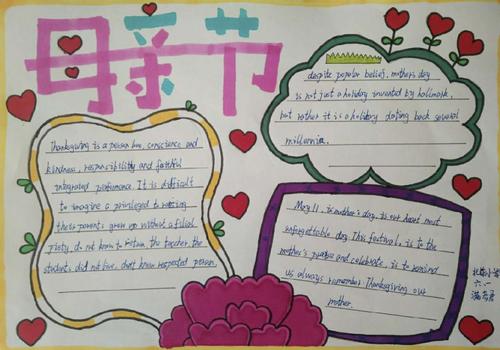 母亲节
despite popular belief, mothers day
is not just a holiday invented by hallmark,
but rather it is a holiday dating back several
millennia.
Thanksgiving is a person has, conscience and
kindness, responsibility and faithful
integrated performance. It is difficult
to imagine a privileged to
their parents, grew up without a filial
Piety, do not know to return the teacher, the
student, did not love, don't know respected person.
May 11, is mother's day, is our heart most
unforgettable day. This festival, is to the
mother's praise and celebrate, is to remind
us always remember Thanksgiving our
mother.
六.一